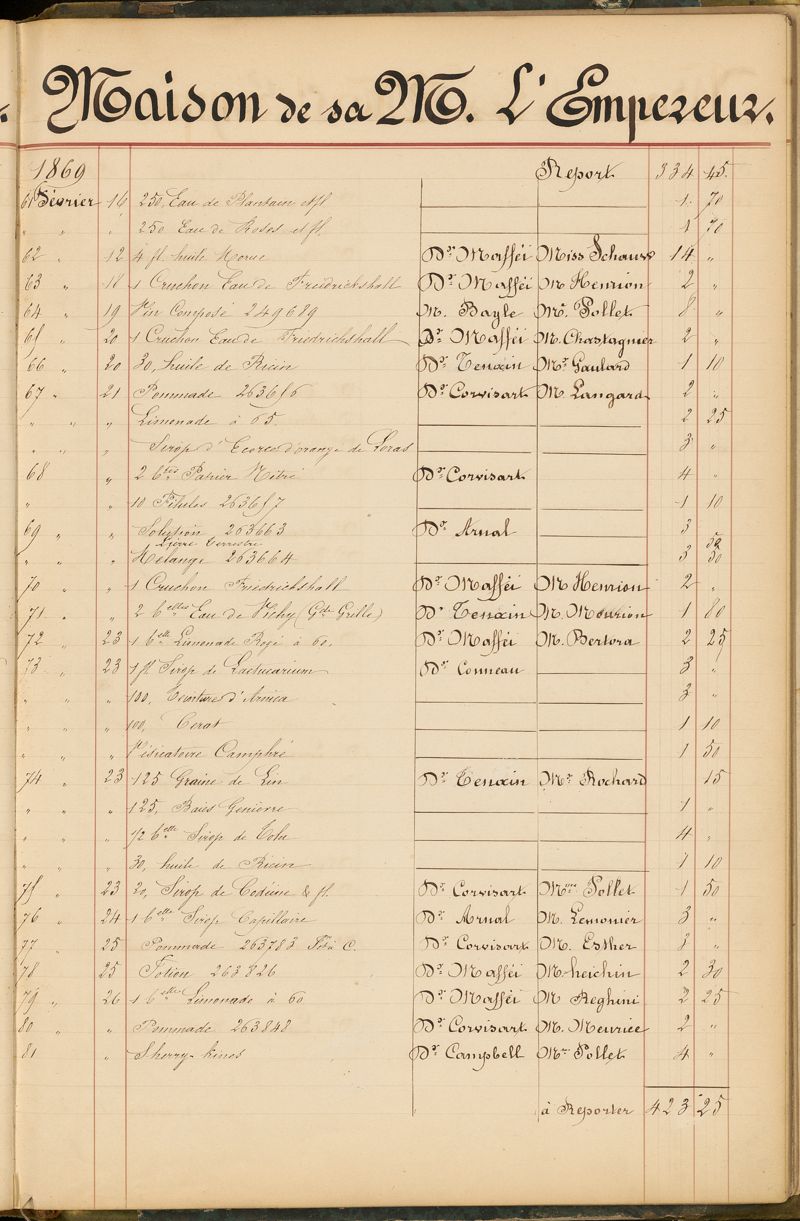 Maison de sa M. L'Empereur.
1869 Report 334 45
61 Février 16 250, Eau de Plantain et fl 1 70
" " " 250 Eau de Roses et fl. 1 70
62 " 12 4 fl. huile Morue Dr Mafféi Miss Schauw 14 "
63 " 18 1 Cruchon Eau de Friedrickshall Dr Mafféi M Henrion 2 "
64 " 19 Vin Composé 249689 M. Bayle Mr Pollet. 8 "
65 " 20 1 Cruchon Eau de Friedrickshall Dr Mafféi M. Chastagnier 2 "
66 " 20 30, huile de Ricin Dr Tenain Mr Gaulard 1 10
67 " 21 Pommade 263656 Dr Corvisart M. Langard 2 "
" " " Limonade à 65. 2 25
" " " Sirop d'Ecorces d'orange de Loras 3 "
68 " 2 btes Papier Nitré Dr Corvisart 4 "
" " 10 Pilules 263657 1 10
69 " " Solution 263663 Dr Arnal 3
Pierre Terrestre
" " " Mélange 263664 3 50
70 " " 1 Cruchon Friedrickshall Dr Mafféi M Henrion 2 "
71 " " 2 belles Eau de Vichy (Gde Grille) Dr Tenain M. Mourion 1 80
72 " 23 1 belle Limonade Rogé à 60. Dr Mafféi M. Bertora 2 25
73 " 23 1 fl Sirop de Lactucarium Dr Conneau 3 "
" " " 100, Teinture d'Arnica 3 "
" " " 100, Cerat 1 10
" " " Vésicatoire Camphré 1 50
74 " 23 125 Graine de Lin Dr Tenain Mr Rochard 15
" " " 125, Baies Genièvre 1 "
" " " 1/2 belle Sirop de Tolu 4 "
" " " 30, huile de Ricin 1 10
75 " 23 20, Sirop de Codéine & fl. Dr Corvisart Mme Pollet 1 50
76 " 24 1 belle Sirop Capillaire Dr Arnal M. Lemonier 3 "
77 " 25 Pommade 263783 C. Dr Corvisart M. Esther 3 "
78 25 Potion 263826 Dr Mafféi M heichin 2 30
79 " 26 1 belle Limonade à 60 Dr Mafféi M Reghini 2 25
80 " " Pommade 263848 Dr Corvisart M. Meuriée 2 "
81 " Sherry-kinos Dr Campbell Mr Pollet 4 "
à Reporter 423 25